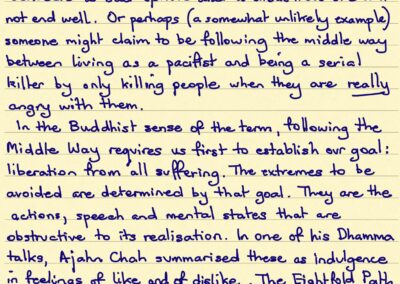 not end well. Or perhaps (a somewhat unlikely example)
someone might claim to be following the middle way
between living as a pacifist and being a serial
killer by only killing people when they are really
angry with them.
In the Buddhist sense of the term, following the
Middle Way requires us first to establish our goal:
liberation from all suffering. The extremes to be
avoided are determined by that goal. They are the
actions, speech and mental states that are
obstructive to its realisation. In one of his Dhamma
talks, Ajahn Chah summarised these as indulgence
in feelings of like and of dislike. . The Eightfold Path